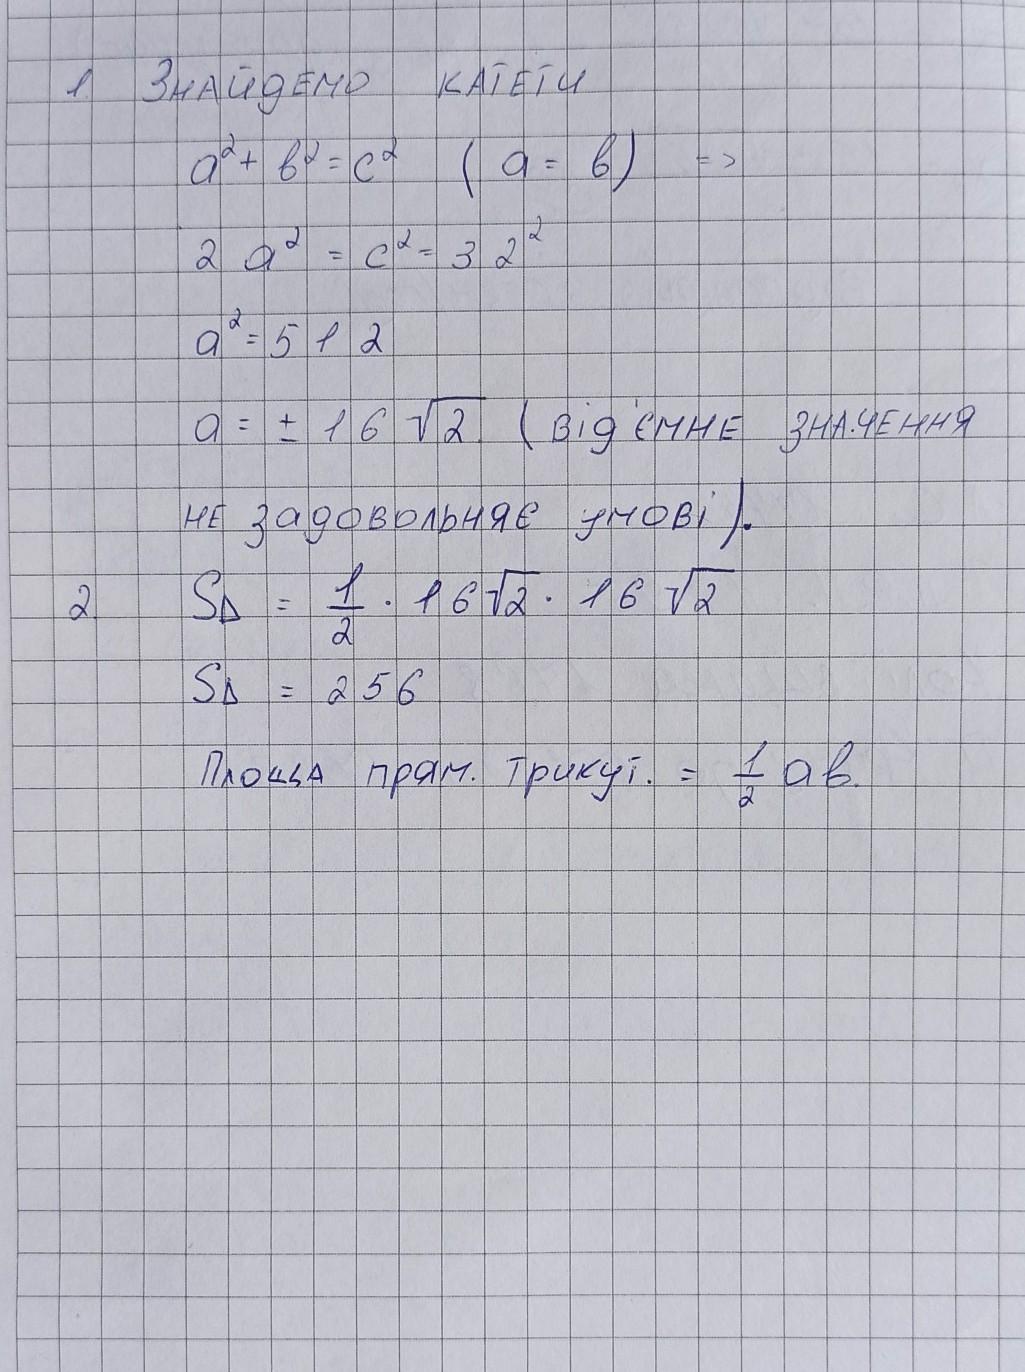 1. Знайдемо катети
a² + b² = c² ( a = b ) =>
2 a² = c² = 32²
a² = 512
a = ± 16 √2 ( від'ємне значення
не задовольняє умові ).
2. S∆ = 1/2 · 16√2 · 16 √2
S∆ = 256
Площа прям. трикут. = 1/2 ab.